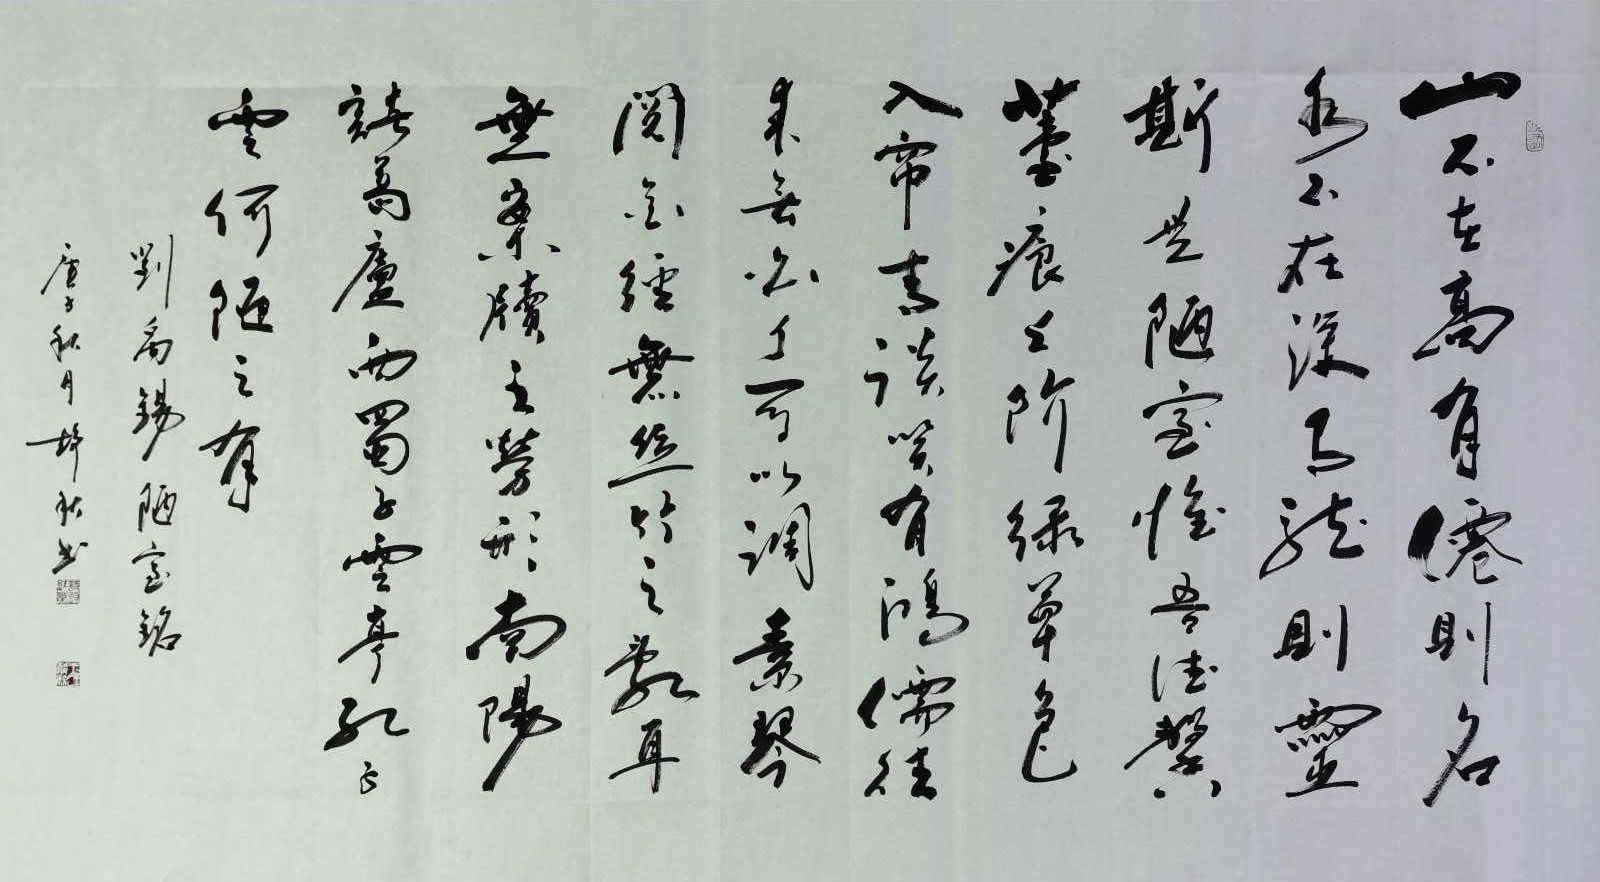 山不在高有僊則名
水不在深有龍則靈
斯是陋室惟吾德馨
薹痕上阶緑草色
入帘青談笑有鴻儒往
來無白丁可以調素琴
閲金經無絲竹之亂耳
無案牘之勞形南陽
諸葛廬西蜀子雲亭孔子
雲何陋之有
劉禹錫陋室銘
庚子秋月 秋书